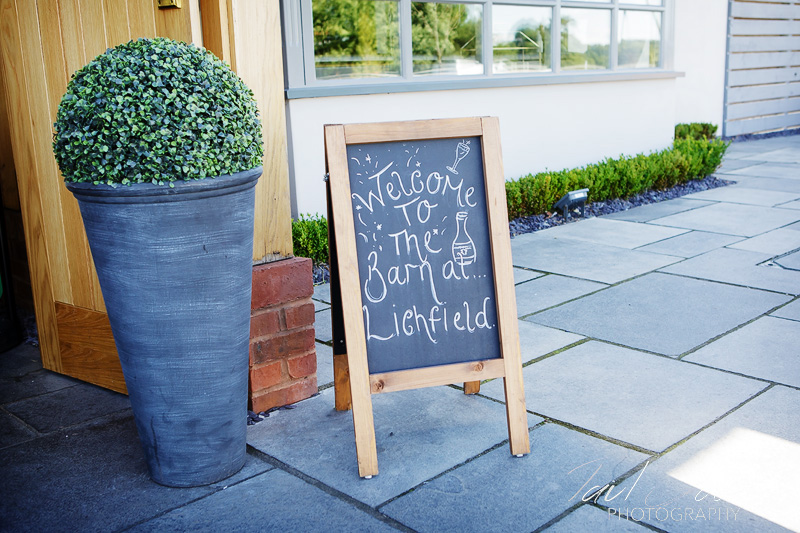 Welcome
To
The
Barn at...
Lichfield.
PHOTOGRAPHY